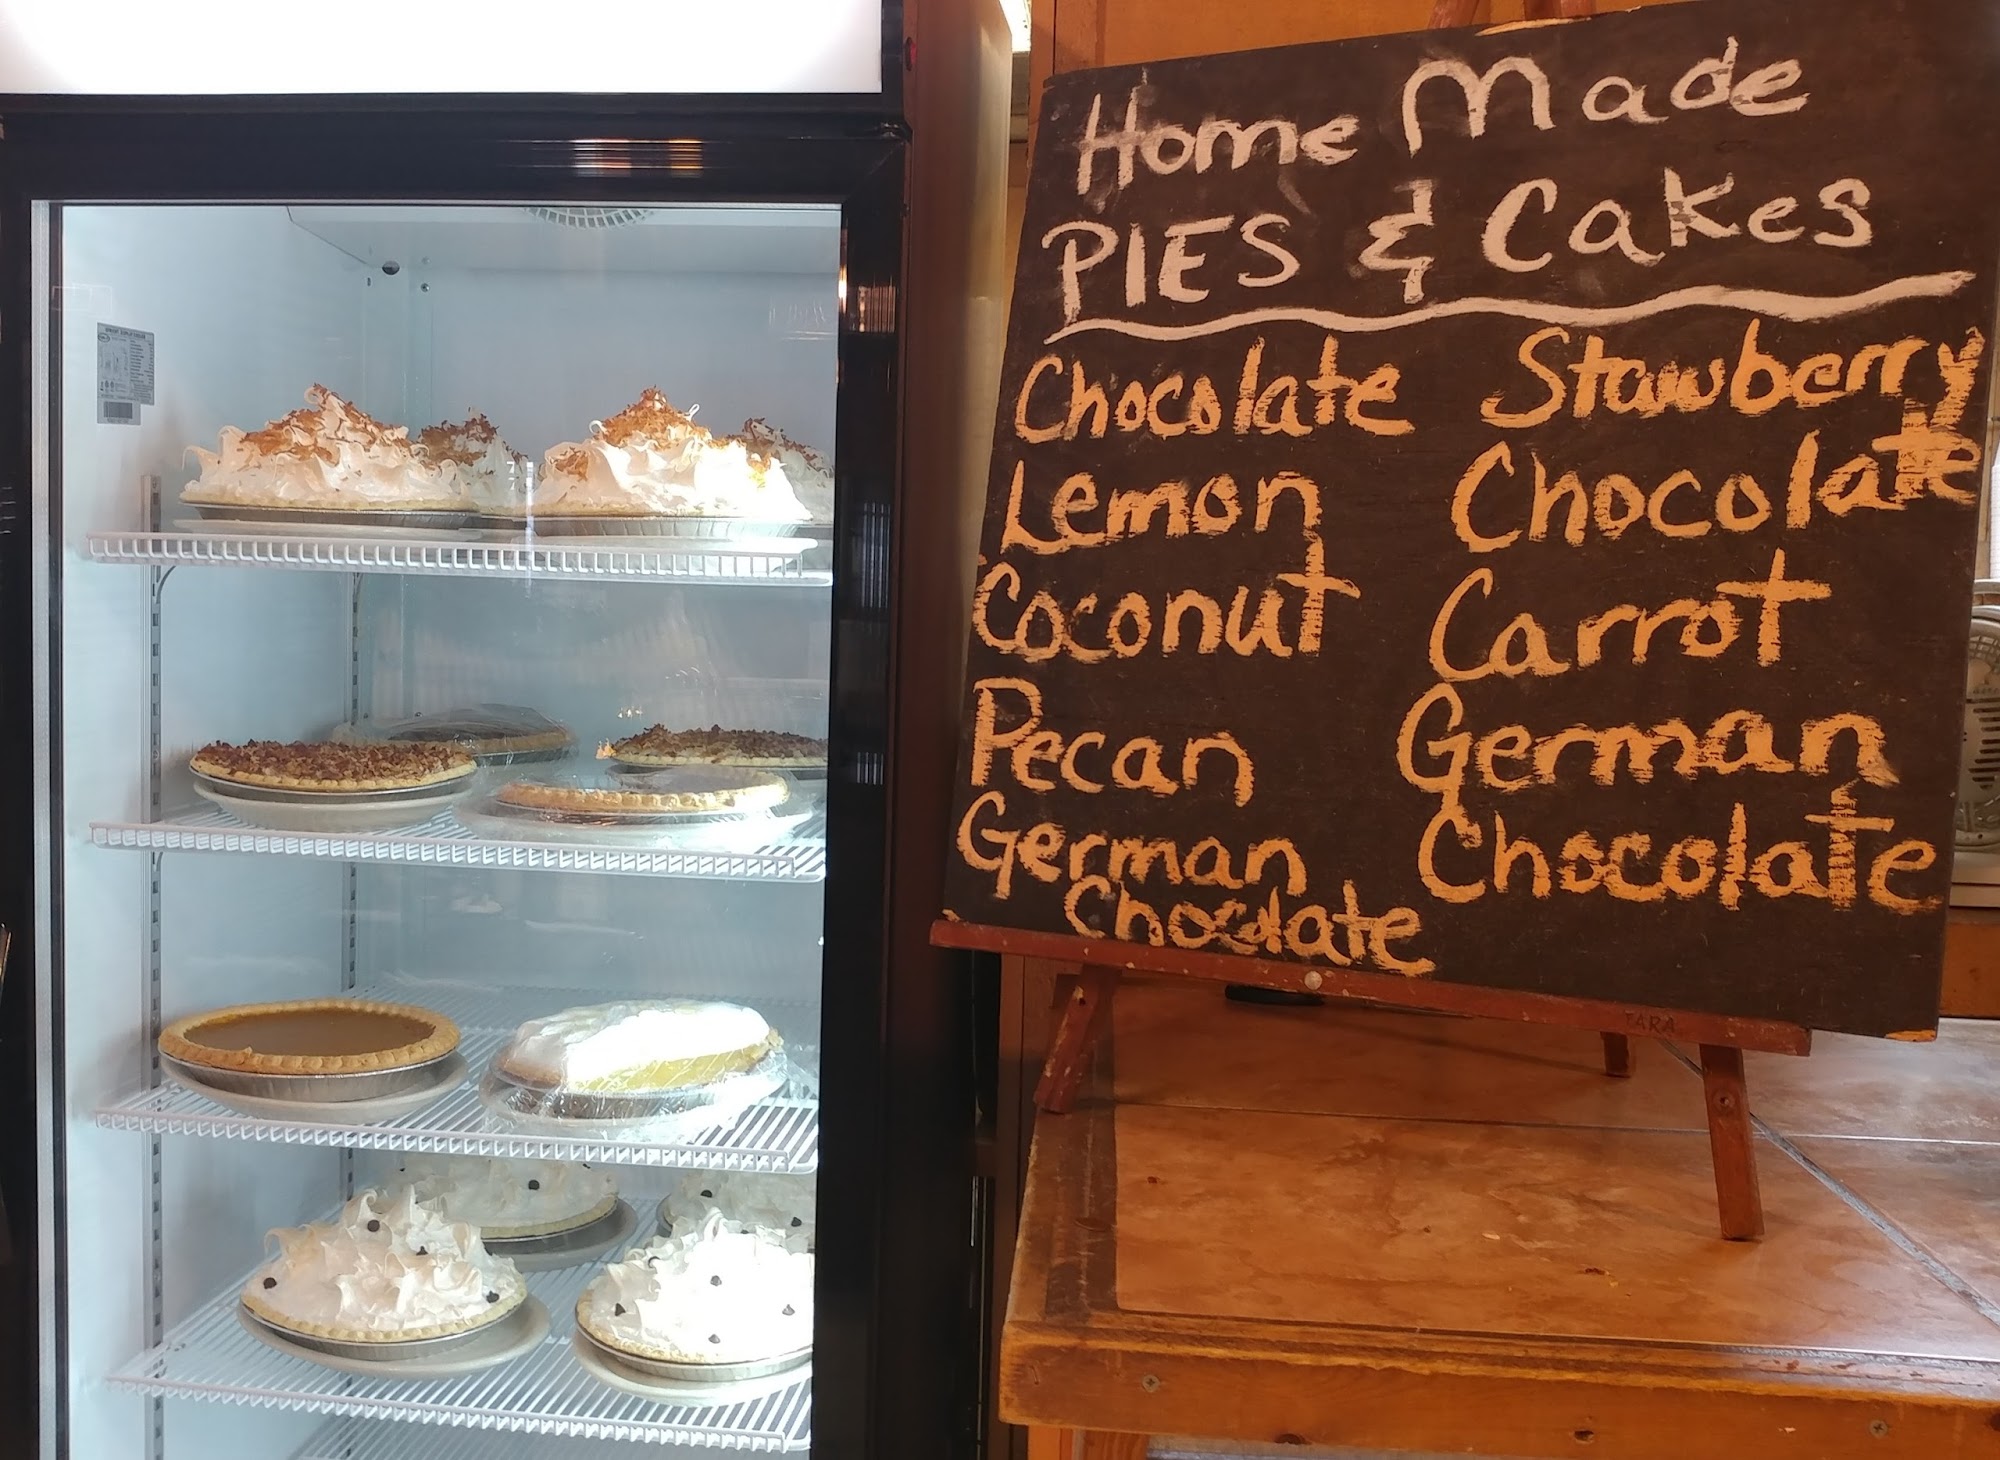 Home Made
PIES & Cakes
Chocolate
Lemon
Coconut
Pecan
German
Chocolate
Stawberry
Chocolate
Carrot
German
Chocolate
TARA